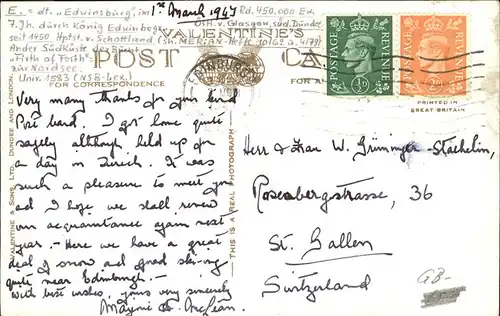 E. = dt. „Edwinsburg", im
7. Jh. durch König Edwin beg.
seit 1450 Hptst. v. Schottland
An der Südküste der Bucht
„Firth of Forth"
zur Nordsee.
Univ. 1583 (NSB-Lex.)
1st March 1947
Rd. 450.000 Ew.
Östl. v. Glasgow, süd. Dundee
(sh. MERIAN-Heft 10/62 a. 4/79)
VALENTINE'S
POST CA
FOR CORRESPONDENCE
FOR A
EDINBURGH
POSTAGE REVENUE
½D
POSTAGE REVENUE
2D
PRINTED IN
GREAT BRITAIN
VALENTINE & SONS, LTD. DUNDEE AND LONDON.
THIS IS A REAL PHOTOGRAPH
Very many thanks for your kind
Post card. I got home quite
safely although held up for
a day in Zurich. It was
such a pleasure to meet you
and I hope we shall renew
our acquaintance again next
year. - Here we have a great
deal of snow and good ski-ing
quite near Edinburgh. -
With best wishes, yours very sincerely
McLean.
Herr & Frau W. Grüninger-Staehelin,
Rosenbergstrasse, 36
St. Gallen
Switzerland
GB-